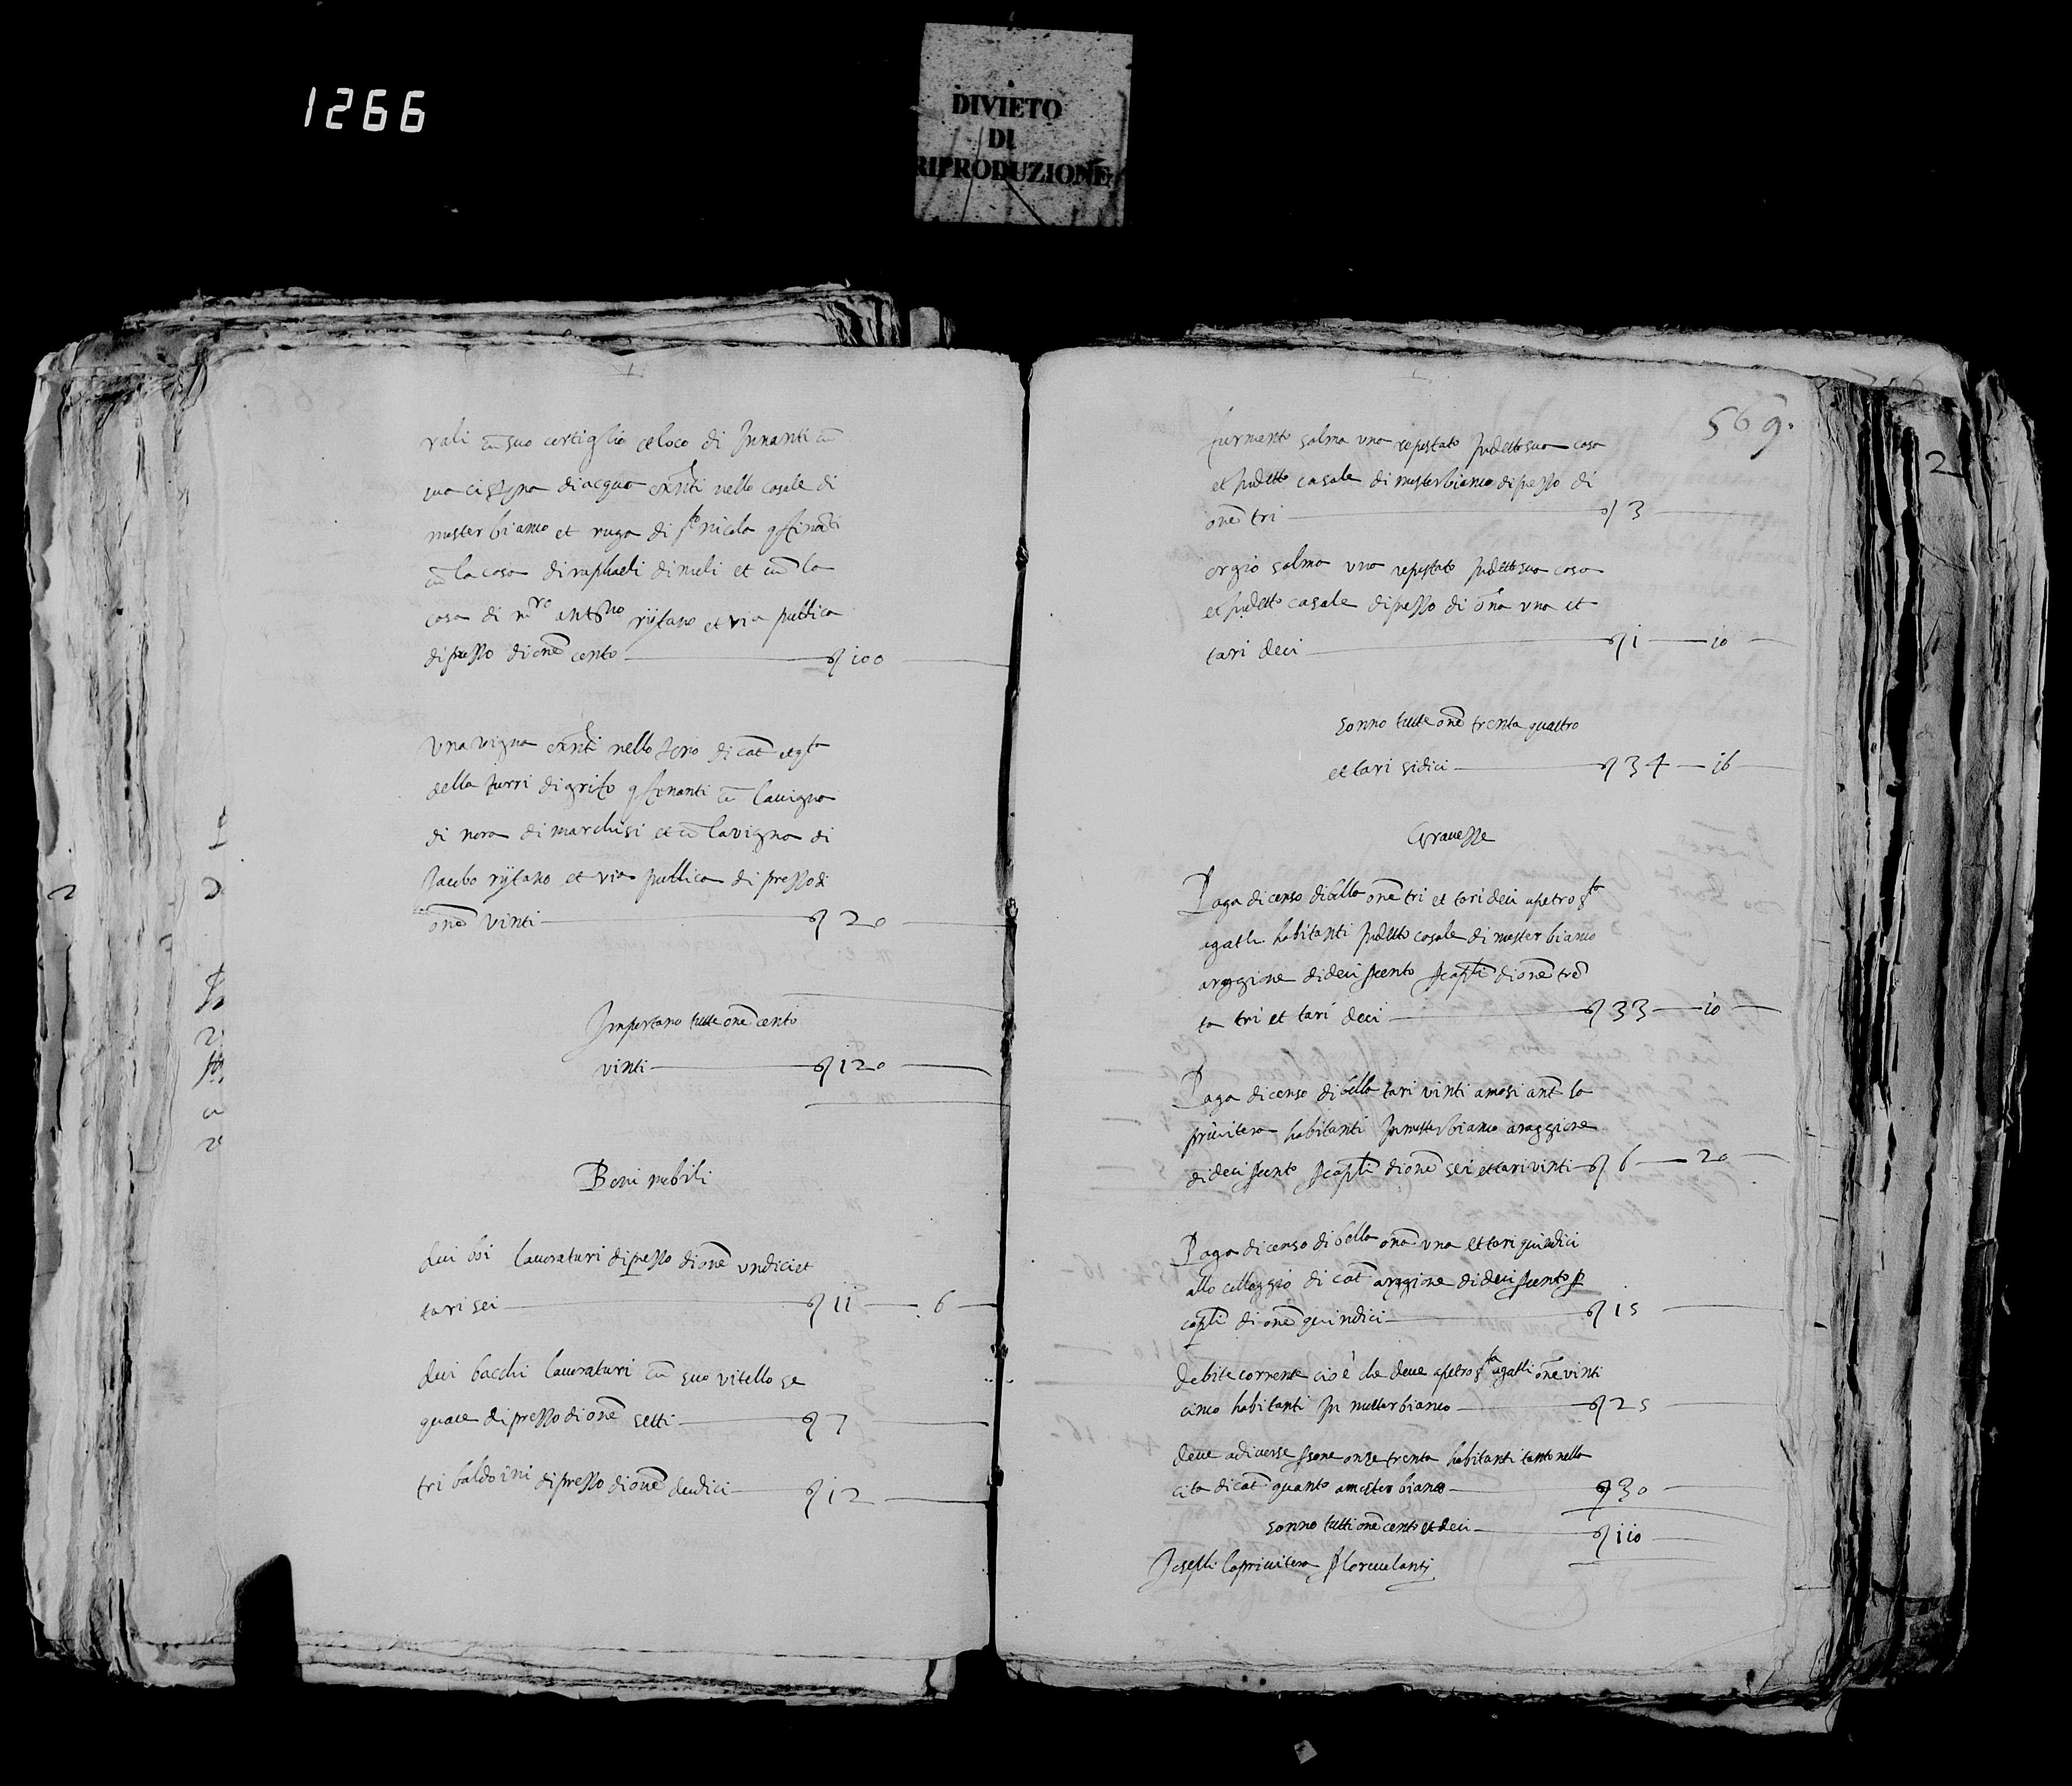 1266
DIVIETO
DI
RIPRODUZIONE
rali cū suo cortiglio et loco di Innanti cū
sua cisterna di acqua exnti nello casale di
mister bianco et ruga di sto nicola
cū la casa di raphaeli di meli et cū la
casa di mro antōno rijtano et via publica
di prezzo di onē cento ꝯ 100
Una vigna exnti nello terio di cat et
della turri di grifo cū la vigna
di nora di marchisi et cū la vigna di
Jacubo rijtano et via publica di prezzo di
onē vinti ꝯ 20
Importano tutte onē cento
vinti ꝯ 120
Beni mobili
dui boi lauoraturi di prezzo di onē undici et
tari sei ꝯ 11 6
dui bacchi lauoraturi cū suo vitello se
quace di prezzo di onē setti ꝯ 7
tri baldoini di prezzo di onē dudici ꝯ 12
569.
2
furmento salma una repostato In detto sua casa
et In detto casale di misterbianco di prezzo di
onē tri ꝯ 3
orgio salma una repostato In detto sua casa
et In detto casale di prezzo di onā una et
tari deci ꝯ 1 10
sonno tutte onē trenta quattro
et tari sidici ꝯ 34 16
Grauezze
Paga di censo di bolla onē tri et tari deci a petro sta
agathi habitanti In detto casale di mister bianco
araggione di deci per cento per capli di onē trē
ta tri et tari deci ꝯ 33 10
Paga di censo di bolla tari vinti a masi antō la
priuitera habitanti In misterbianco araggione
di deci per cento per capli di onē sei et tari vinti ꝯ 6 20
Paga di censo di bolla onā una et tari quindici
allo colleggio di cat araggione di deci per cento p
capli di onē quindici ꝯ 15
debite corrente cio è che deue a petro sta agathi onē vinti
cinco habitanti In misterbianco ꝯ 25
deue a diuerse persone onze trenta habitanti tanto nella
cita di cat quanto a misterbianco ꝯ 30
sonno tutti onē cento et deci ꝯ 110
Joseppi la priuitera